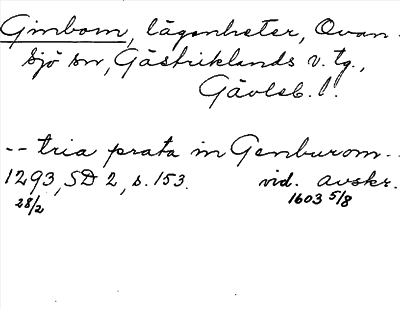 Gimbom, lägenheter, Ovan-
sjö sn, Gästriklands v. tg.,
Gävleb. l.
-- tria prata in Genburom --
1293, SD 2, s. 153. vid. avskr.
28/2 1603 5/8